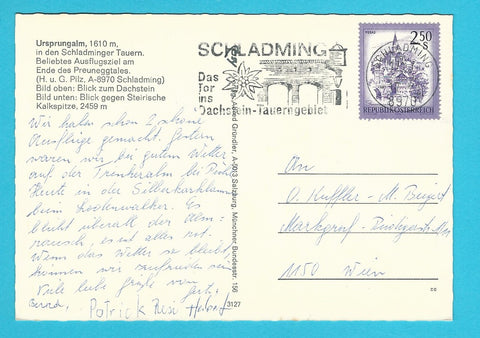 Ursprungalm, 1610 m,
in den Schladminger Tauern.
Beliebtes Ausflugsziel am
Ende des Preuneggtales.
(H. u. G. Pilz, A-8970 Schladming)
Bild oben: Blick zum Dachstein
Bild unten: Blick gegen Steirische
Kalkspitze, 2459 m
Wir haben schon 2 schöne
Ausflüge gemacht. Gestern
waren wir bei gutem Wetter
auf der
Heute in der
beim
blüht überall der Alm-
rausch, es ist alles rot.
Wenn das Wetter so bleibt
können wir zufrieden sein
Viele liebe Grüße von
Patrick Resi
3127
Alfred Gründler, A-5013 Salzburg, Münchner Bundesstr. 156
SCHLADMING
Das
Tor
ins
Dachstein-Tauerngebiet
SCHLADMING
8970
2.50
S
REPUBLIK ÖSTERREICH
An
Markgraf-
1150 Wien